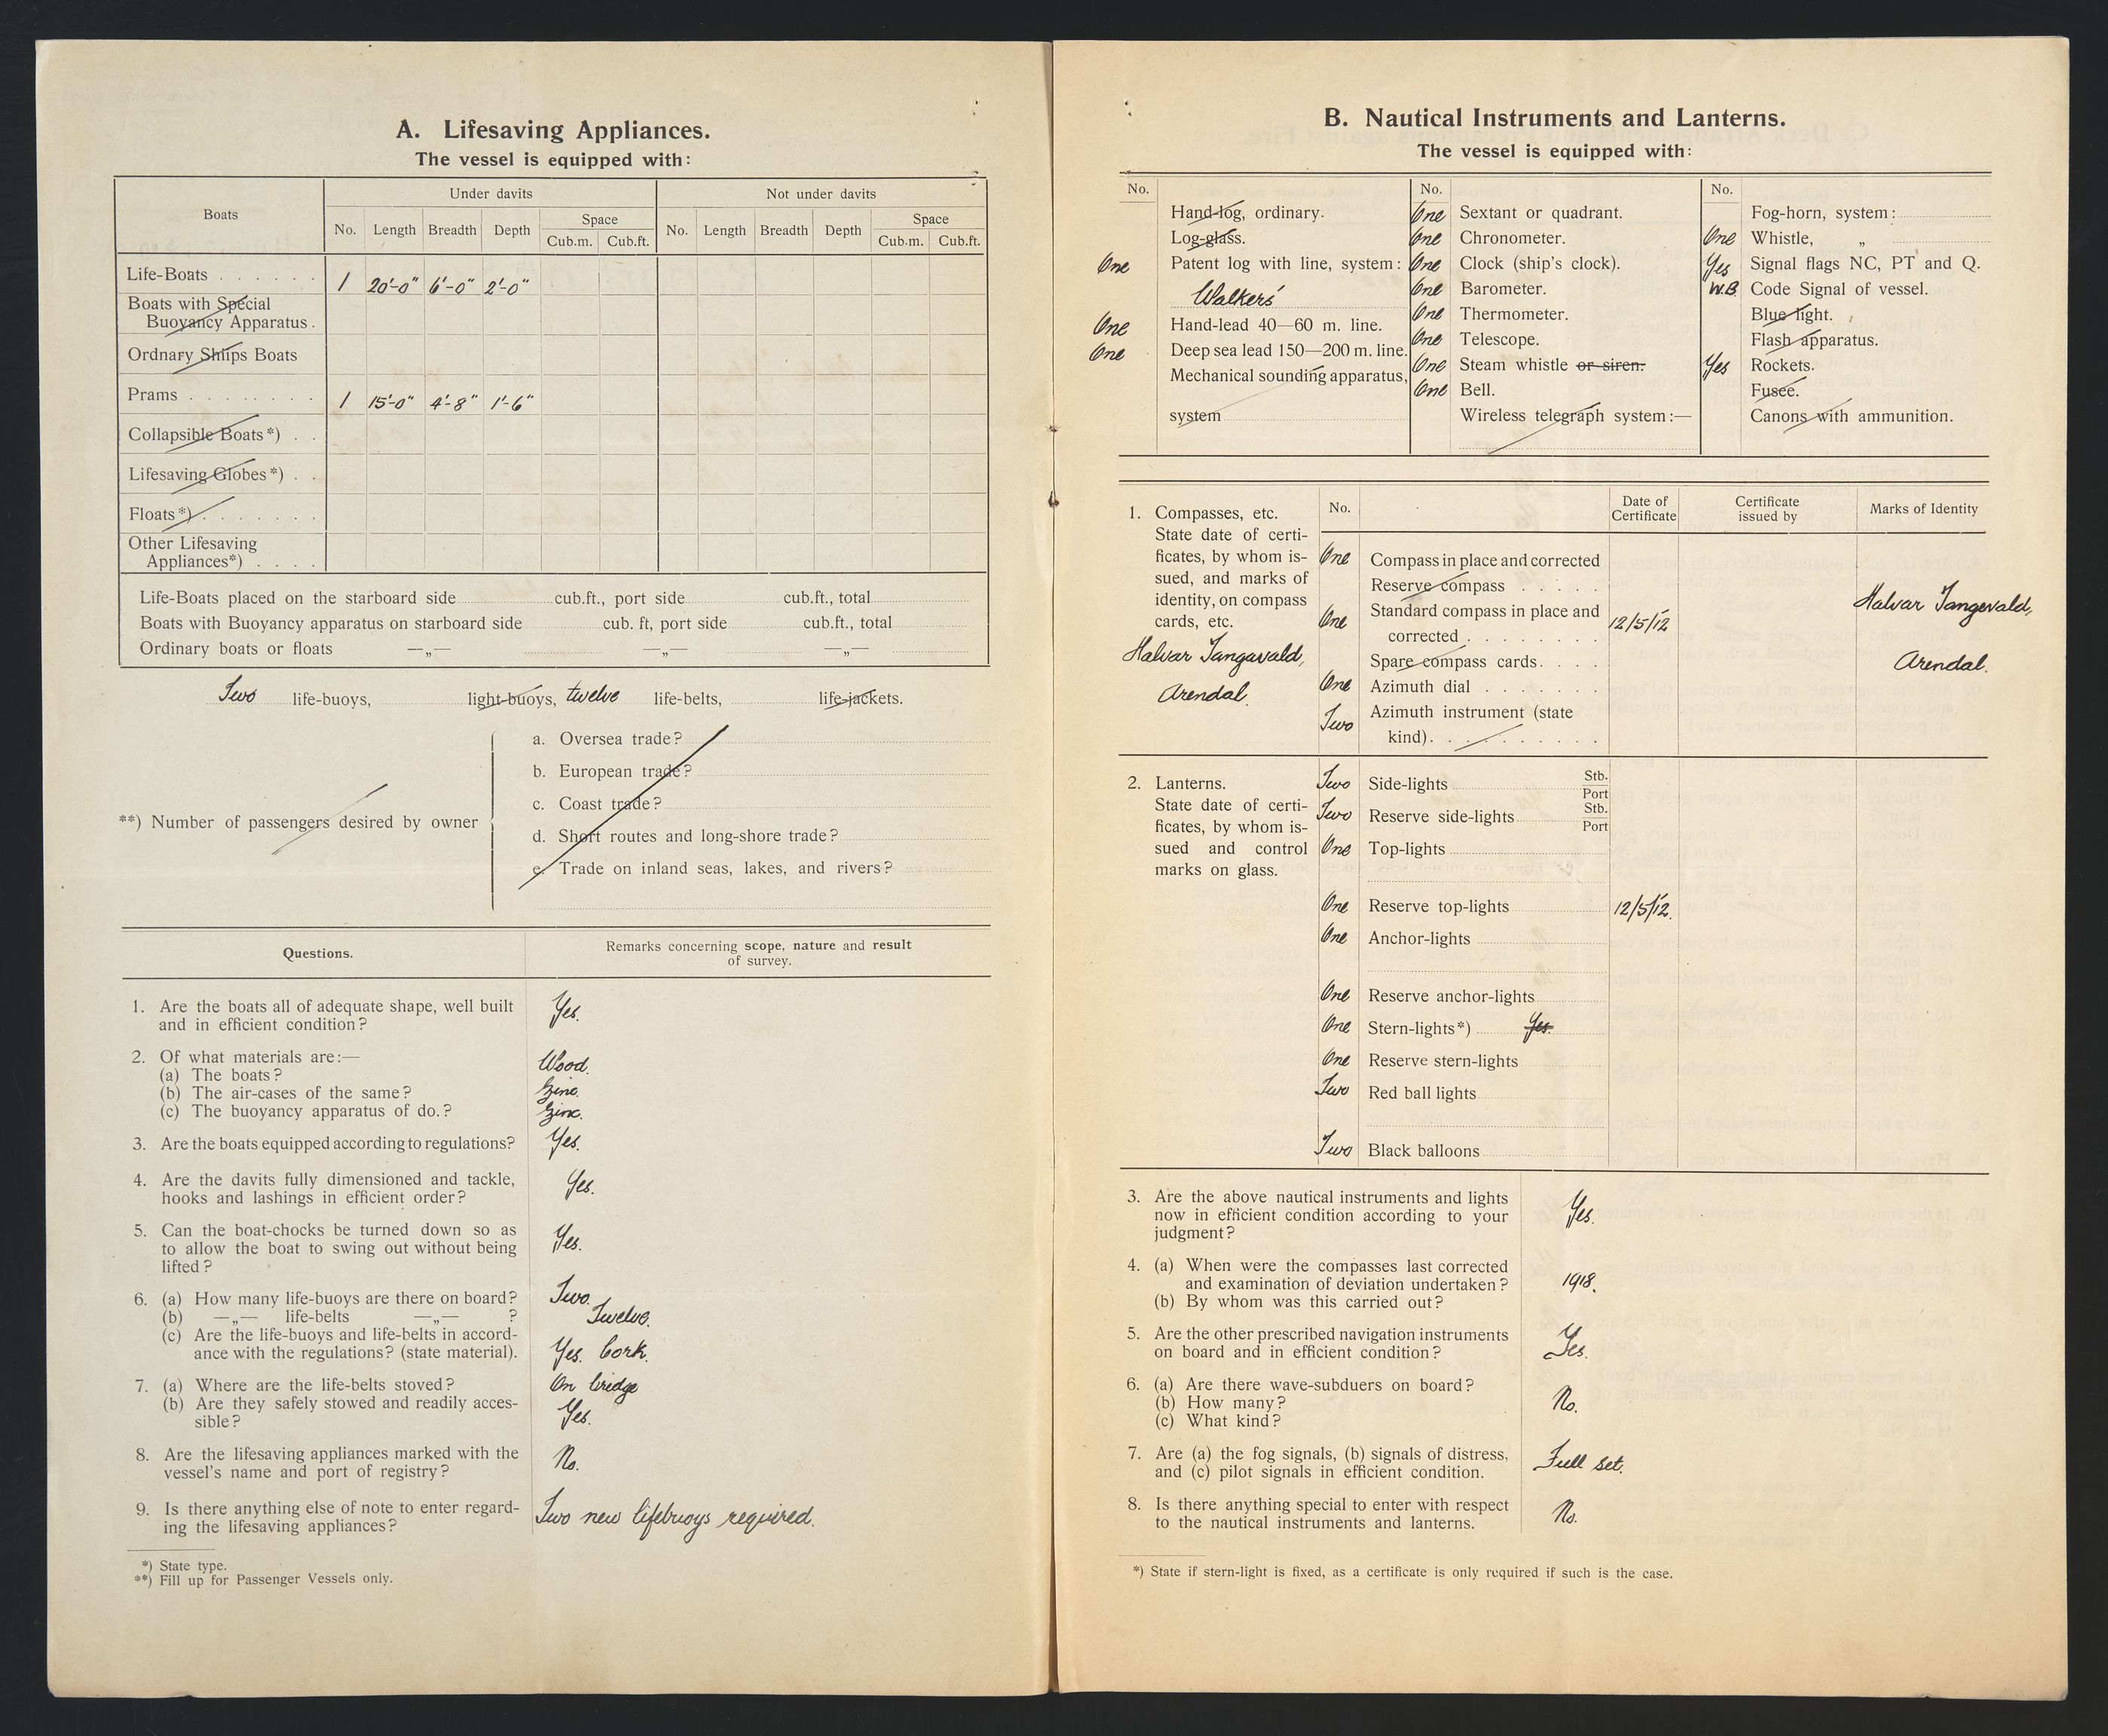 A. Lifesaving Appliances.
The vessel is equipped with:
Boats
Under davits
Not under davits
No. Length Breadth Depth Space
Cub.m. Cub.ft.
No. Length Breadth Depth Space
Cub.m. Cub.ft.
Life-Boats . . . . . . 1 20'-0" 6'-0" 2'-0"
Boats with Special
Buoyancy Apparatus .
Ordnary Ships Boats
Prams . . . . . . . 1 15'-0" 4'-8" 1'-6"
Collapsible Boats*) . .
Lifesaving Globes*) . .
Floats*) . . . . . . .
Other Lifesaving
Appliances*) . . . .
Life-Boats placed on the starboard side cub.ft., port side cub.ft., total
Boats with Buoyancy apparatus on starboard side cub. ft, port side cub.ft., total
Ordinary boats or floats —„— —„— —„—
Two life-buoys, light-buoys, twelve life-belts, life-jackets.
**) Number of passengers desired by owner
a. Oversea trade?
b. European trade?
c. Coast trade?
d. Short routes and long-shore trade?
e. Trade on inland seas, lakes, and rivers?
Questions.
Remarks concerning scope, nature and result
of survey.
1. Are the boats all of adequate shape, well built
and in efficient condition? Yes.
2. Of what materials are:—
(a) The boats? Wood.
(b) The air-cases of the same? Zinc.
(c) The buoyancy apparatus of do.? Zinc.
3. Are the boats equipped according to regulations? Yes.
4. Are the davits fully dimensioned and tackle,
hooks and lashings in efficient order? Yes.
5. Can the boat-chocks be turned down so as
to allow the boat to swing out without being Yes.
lifted?
6. (a) How many life-buoys are there on board? Two.
(b) —„— life-belts —„— ? Twelve.
(c) Are the life-buoys and life-belts in accord-
ance with the regulations? (state material). Yes. Cork.
7. (a) Where are the life-belts stoved? On bridge
(b) Are they safely stowed and readily acces-
sible? Yes.
8. Are the lifesaving appliances marked with the
vessel's name and port of registry? No.
9. Is there anything else of note to enter regard-
ing the lifesaving appliances? Two new lifebuoys required.
*) State type.
**) Fill up for Passenger Vessels only.
B. Nautical Instruments and Lanterns.
The vessel is equipped with:
No.
Hand-log, ordinary.
Log-glass.
One Patent log with line, system:
Walkers'
One Hand-lead 40—60 m. line.
One Deep sea lead 150—200 m. line.
Mechanical sounding apparatus,
system
No.
One Sextant or quadrant.
One Chronometer.
One Clock (ship's clock).
One Barometer.
One Thermometer.
One Telescope.
One Steam whistle or siren.
One Bell.
Wireless telegraph system:—
No.
Fog-horn, system:
One Whistle, „
Yes Signal flags NC, PT and Q.
W.B. Code Signal of vessel.
Blue light.
Flash apparatus.
Yes Rockets.
Fusee.
Canons with ammunition.
1. Compasses, etc.
State date of certi-
ficates, by whom is-
sued, and marks of
identity, on compass
cards, etc.
Halvar Tangevald,
Arendal.
No.
Date of
Certificate
Certificate
issued by
Marks of Identity
One Compass in place and corrected
Reserve compass . . . . .
One Standard compass in place and
corrected . . . . . . . . 12/5/12
Spare compass cards. . . .
One Azimuth dial . . . . . . .
Two Azimuth instrument (state
kind). . . . . . . . . .
Halvar Tangevald,
Arendal.
2. Lanterns.
State date of certi-
ficates, by whom is-
sued and control
marks on glass.
Two Side-lights Stb.
Port
Two Reserve side-lights Stb.
Port
One Top-lights
One Reserve top-lights 12/5/12.
One Anchor-lights
One Reserve anchor-lights
One Stern-lights*) Yes.
One Reserve stern-lights
Two Red ball lights
Two Black balloons
3. Are the above nautical instruments and lights
now in efficient condition according to your Yes.
judgment?
4. (a) When were the compasses last corrected
and examination of deviation undertaken? 1918.
(b) By whom was this carried out?
5. Are the other prescribed navigation instruments
on board and in efficient condition? Yes.
6. (a) Are there wave-subduers on board?
(b) How many? No.
(c) What kind?
7. Are (a) the fog signals, (b) signals of distress,
and (c) pilot signals in efficient condition. Full set.
8. Is there anything special to enter with respect
to the nautical instruments and lanterns. No.
*) State if stern-light is fixed, as a certificate is only required if such is the case.